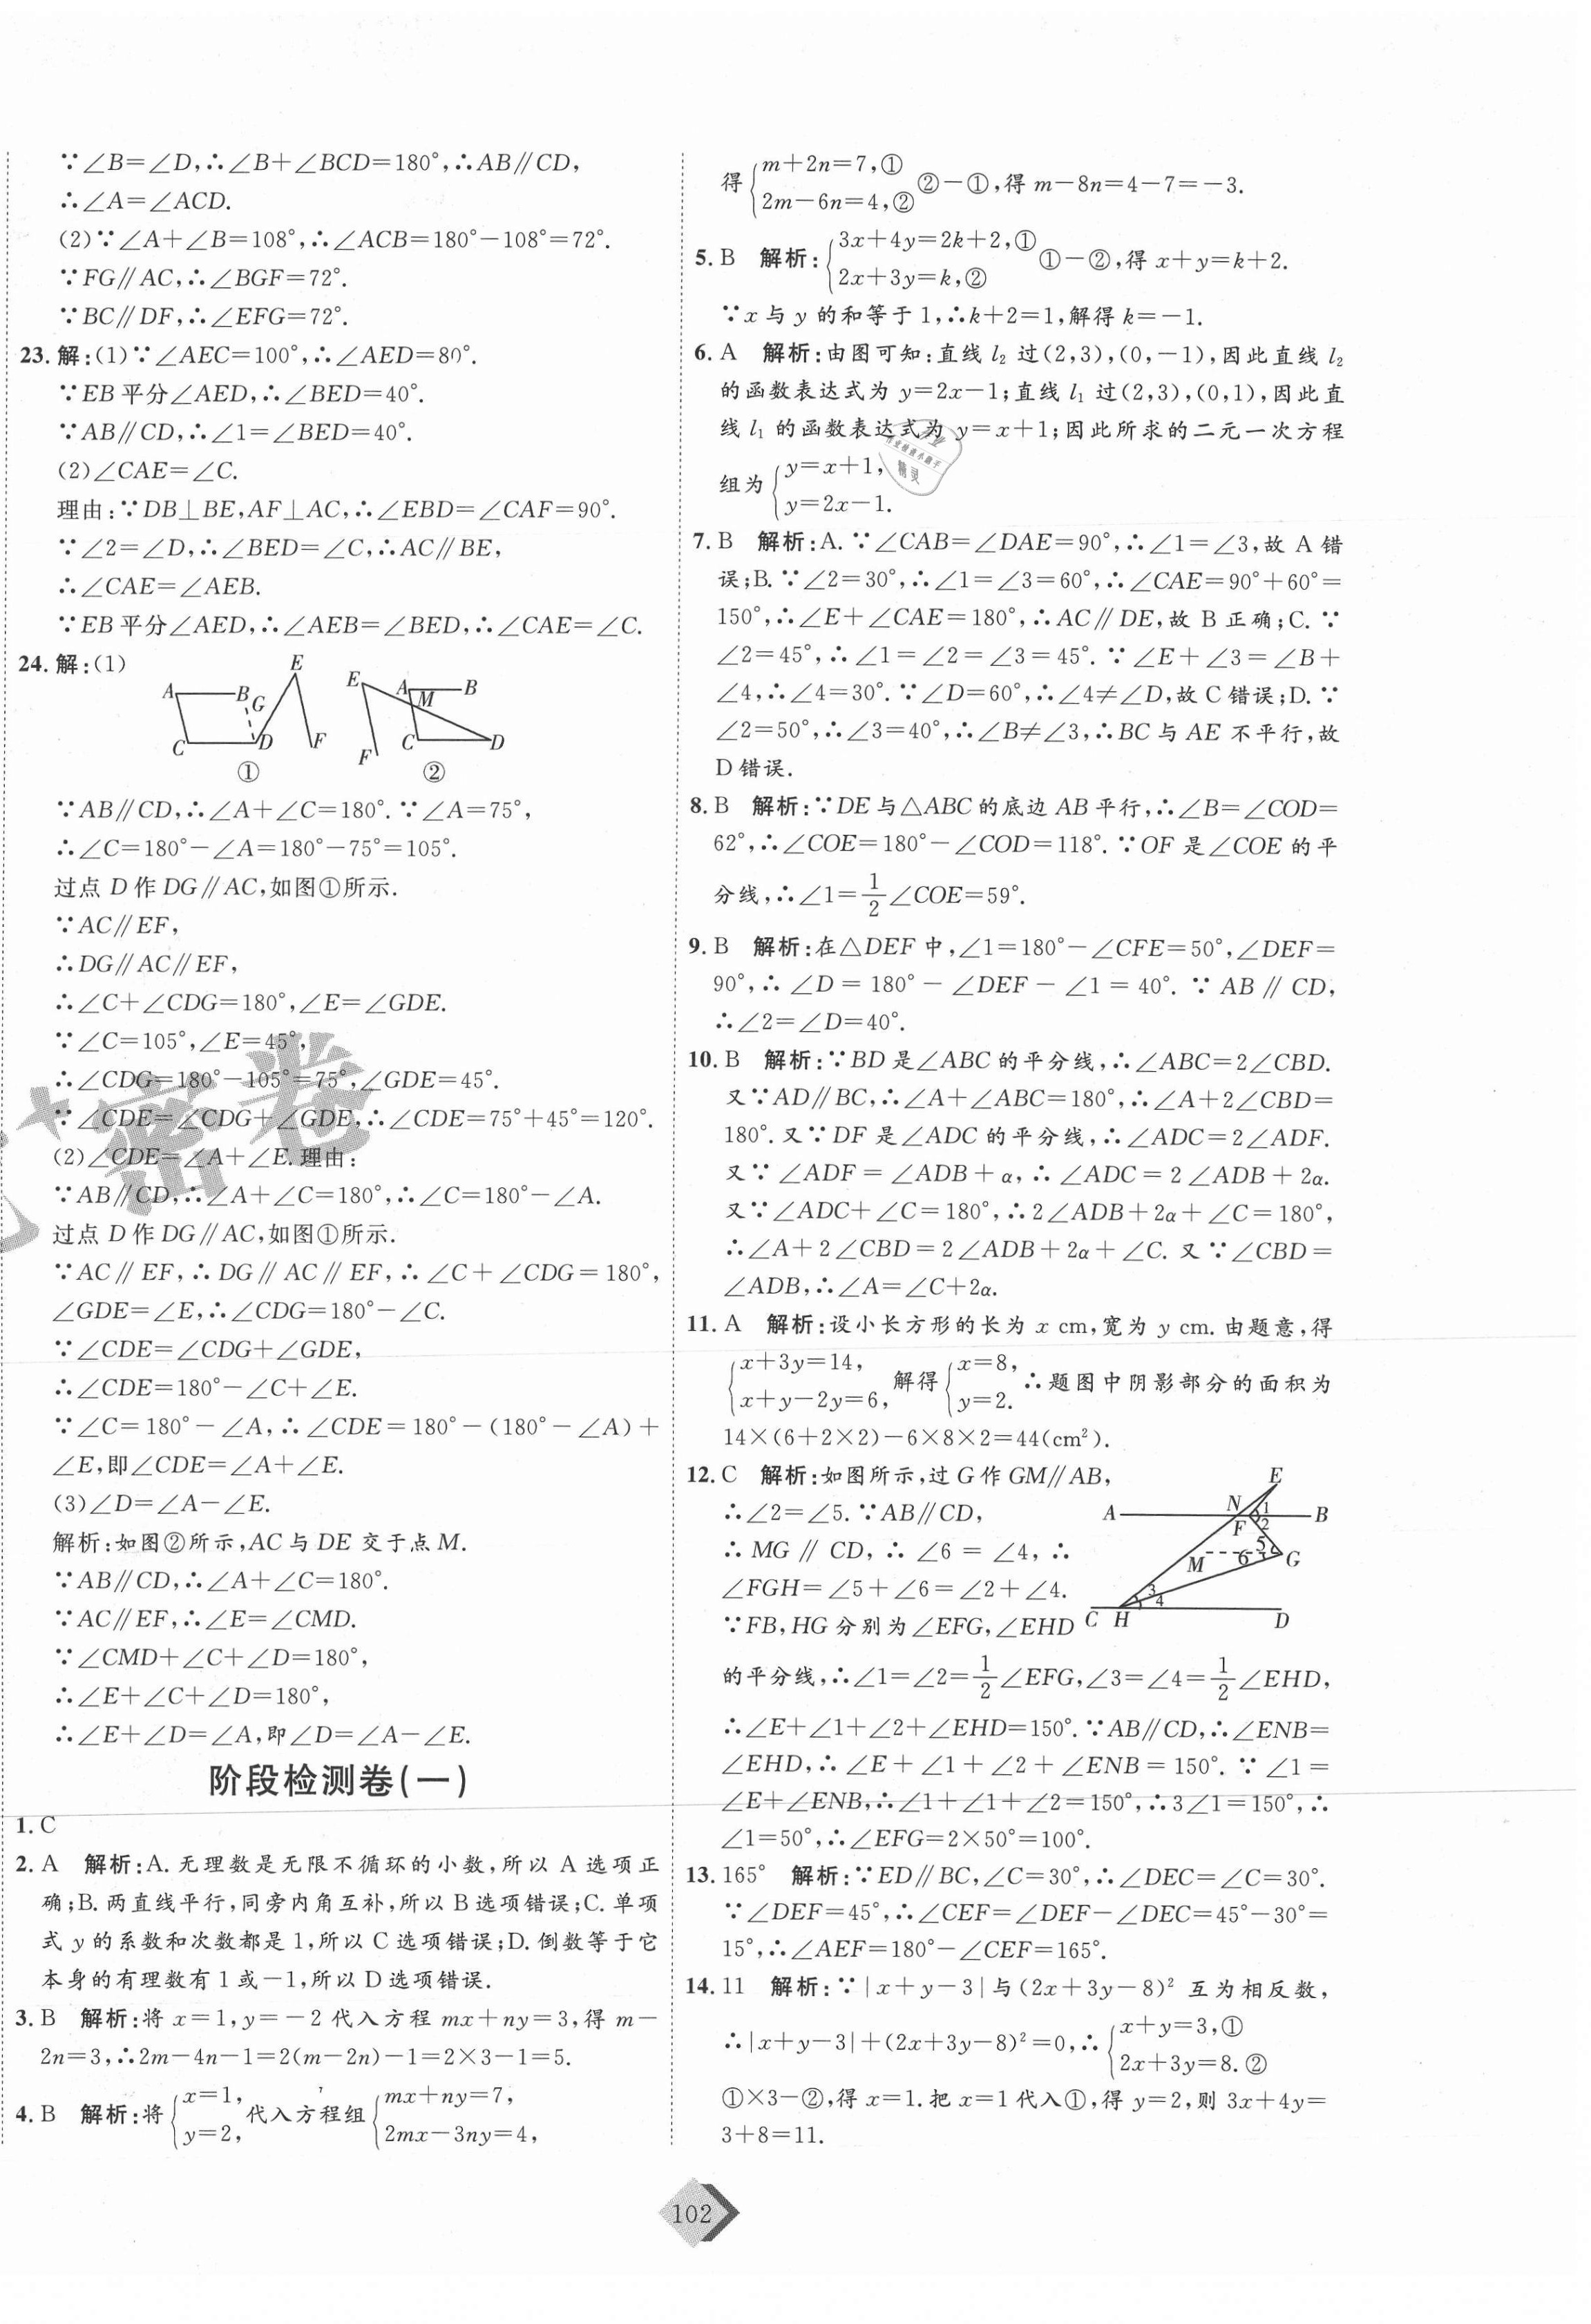 ∵∠B=∠D,∴∠B+∠BCD=180°,∴AB∥CD,
∴∠A=∠ACD.
(2)∵∠A+∠B=108°,∴∠ACB=180°-108°=72°.
∵FG∥AC,∴∠BGF=72°.
∵BC∥DF,∴∠EFG=72°.
23.解:(1)∵∠AEC=100°,∴∠AED=80°.
∵EB平分∠AED,∴∠BED=40°.
∵AB∥CD,∴∠1=∠BED=40°.
(2)∠CAE=∠C.
理由:∵DB⊥BE,AF⊥AC,∴∠EBD=∠CAF=90°.
∵∠2=∠D,∴∠BED=∠C,∴AC∥BE,
∴∠CAE=∠AEB.
∵EB平分∠AED,∴∠AEB=∠BED,∴∠CAE=∠C.
24.解:(1)
A B G E C D F ①
E A B M F C D ②
∵AB∥CD,∴∠A+∠C=180°.∵∠A=75°,
∴∠C=180°-∠A=180°-75°=105°.
过点D作DG∥AC,如图①所示.
∵AC∥EF,
∴DG∥AC∥EF,
∴∠C+∠CDG=180°,∠E=∠GDE.
∵∠C=105°,∠E=45°,
∴∠CDG=180°-105°=75°,∠GDE=45°.
∵∠CDE=∠CDG+∠GDE,∴∠CDE=75°+45°=120°.
(2)∠CDE=∠A+∠E.理由:
∵AB∥CD,∴∠A+∠C=180°,∴∠C=180°-∠A.
过点D作DG∥AC,如图①所示.
∵AC∥EF,∴DG∥AC∥EF,∴∠C+∠CDG=180°,
∠GDE=∠E,∴∠CDG=180°-∠C.
∵∠CDE=∠CDG+∠GDE,
∴∠CDE=180°-∠C+∠E.
∵∠C=180°-∠A,∴∠CDE=180°-(180°-∠A)+
∠E,即∠CDE=∠A+∠E.
(3)∠D=∠A-∠E.
解析:如图②所示,AC与DE交于点M.
∵AB∥CD,∴∠A+∠C=180°.
∵AC∥EF,∴∠E=∠CMD.
∵∠CMD+∠C+∠D=180°,
∴∠E+∠C+∠D=180°,
∴∠E+∠D=∠A,即∠D=∠A-∠E.
阶段检测卷(一)
1.C
2.A 解析:A.无理数是无限不循环的小数,所以A选项正
确;B.两直线平行,同旁内角互补,所以B选项错误;C.单项
式y的系数和次数都是1,所以C选项错误;D.倒数等于它
本身的有理数有1或-1,所以D选项错误.
3.B 解析:将x=1,y=-2代入方程mx+ny=3,得m-
2n=3,∴2m-4n-1=2(m-2n)-1=2×3-1=5.
4.B 解析:将{x=1, y=2,代入方程组{mx+ny=7, 2mx-3ny=4,
得{m+2n=7,① 2m-6n=4,② ②-①,得m-8n=4-7=-3.
5.B 解析:{3x+4y=2k+2,① 2x+3y=k,② ①-②,得x+y=k+2.
∵x与y的和等于1,∴k+2=1,解得k=-1.
6.A 解析:由图可知:直线l₂过(2,3),(0,-1),因此直线l₂
的函数表达式为y=2x-1;直线l₁过(2,3),(0,1),因此直
线l₁的函数表达式为y=x+1;因此所求的二元一次方程
组为{y=x+1, y=2x-1.
7.B 解析:A.∵∠CAB=∠DAE=90°,∴∠1=∠3,故A错
误;B.∵∠2=30°,∴∠1=∠3=60°,∴∠CAE=90°+60°=
150°,∴∠E+∠CAE=180°,∴AC∥DE,故B正确;C.∵
∠2=45°,∴∠1=∠2=∠3=45°.∵∠E+∠3=∠B+
∠4,∴∠4=30°.∵∠D=60°,∴∠4≠∠D,故C错误;D.∵
∠2=50°,∴∠3=40°,∴∠B≠∠3,∴BC与AE不平行,故
D错误.
8.B 解析:∵DE与△ABC的底边AB平行,∴∠B=∠COD=
62°,∴∠COE=180°-∠COD=118°.∵OF是∠COE的平
分线,∴∠1=1/2∠COE=59°.
9.B 解析:在△DEF中,∠1=180°-∠CFE=50°,∠DEF=
90°,∴∠D=180°-∠DEF-∠1=40°.∵AB∥CD,
∴∠2=∠D=40°.
10.B 解析:∵BD是∠ABC的平分线,∴∠ABC=2∠CBD.
又∵AD∥BC,∴∠A+∠ABC=180°,∴∠A+2∠CBD=
180°.又∵DF是∠ADC的平分线,∴∠ADC=2∠ADF.
又∵∠ADF=∠ADB+α,∴∠ADC=2∠ADB+2α.
又∵∠ADC+∠C=180°,∴2∠ADB+2α+∠C=180°,
∴∠A+2∠CBD=2∠ADB+2α+∠C.又∵∠CBD=
∠ADB,∴∠A=∠C+2α.
11.A 解析:设小长方形的长为x cm,宽为y cm.由题意,得
{x+3y=14, x+y-2y=6,解得{x=8, y=2.∴题图中阴影部分的面积为
14×(6+2×2)-6×8×2=44(cm²).
12.C 解析:如图所示,过G作GM∥AB,
∴∠2=∠5.∵AB∥CD,
∴MG∥CD,∴∠6=∠4,∴
∠FGH=∠5+∠6=∠2+∠4.
∵FB,HG分别为∠EFG,∠EHD
E A N 1 B F 2 M 5 6 G 3 4 C H D
的平分线,∴∠1=∠2=1/2∠EFG,∠3=∠4=1/2∠EHD,
∴∠E+∠1+∠2+∠EHD=150°.∵AB∥CD,∴∠ENB=
∠EHD,∴∠E+∠1+∠2+∠ENB=150°.∵∠1=
∠E+∠ENB,∴∠1+∠1+∠2=150°,∴3∠1=150°,∴
∠1=50°,∴∠EFG=2×50°=100°.
13.165° 解析:∵ED∥BC,∠C=30°,∴∠DEC=∠C=30°.
∵∠DEF=45°,∴∠CEF=∠DEF-∠DEC=45°-30°=
15°,∴∠AEF=180°-∠CEF=165°.
14.11 解析:∵|x+y-3|与(2x+3y-8)²互为相反数,
∴|x+y-3|+(2x+3y-8)²=0,∴{x+y=3,① 2x+3y=8.②
①×3-②,得x=1.把x=1代入①,得y=2,则3x+4y=
3+8=11.
102
密卷
精灵